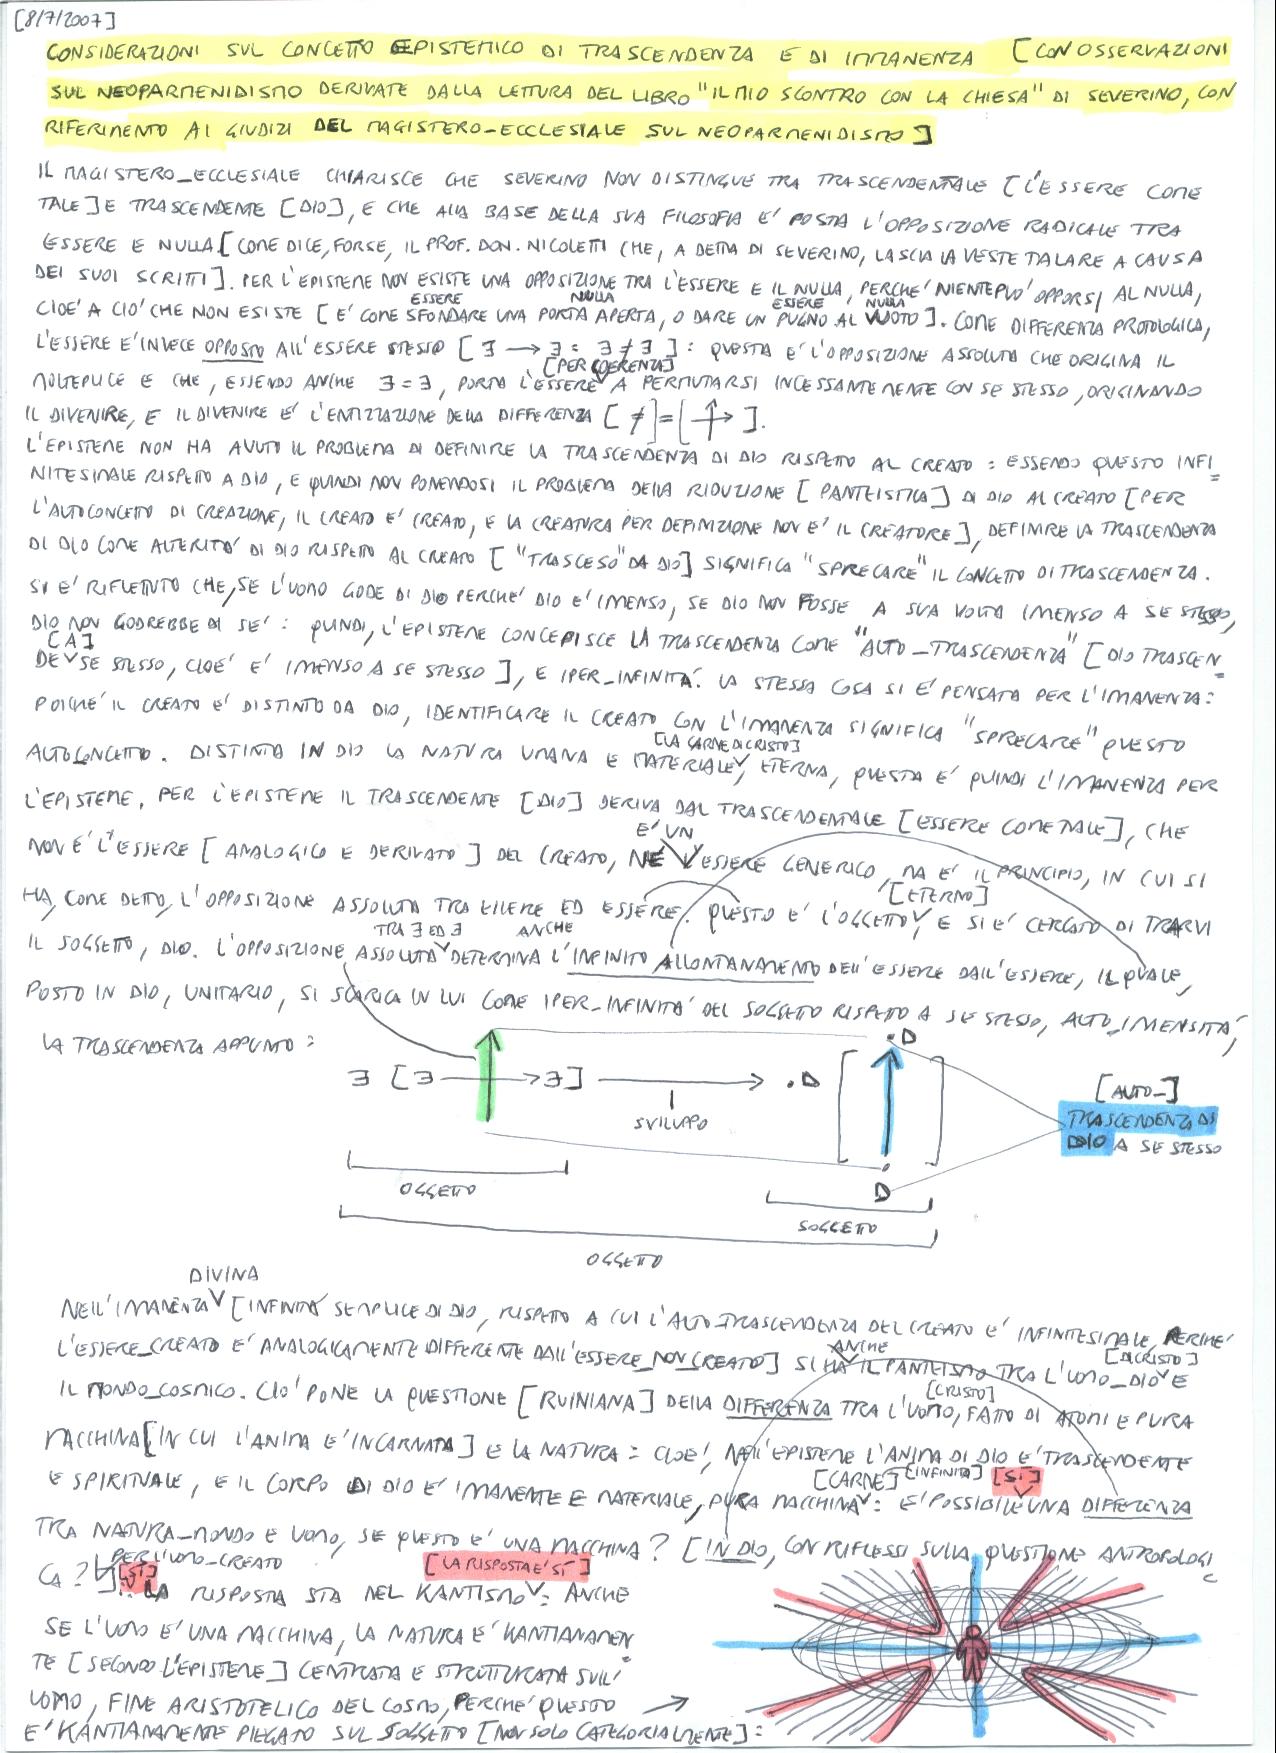 [8/7/2007]
CONSIDERAZIONI SUL CONCETTO EPISTEMICO DI TRASCENDENZA E DI IMMANENZA [CON OSSERVAZIONI
SUL NEOPARMENIDISMO DERIVATE DALLA LETTURA DEL LIBRO "IL MIO SCONTRO CON LA CHIESA" DI SEVERINO, CON
RIFERIMENTO AI GIUDIZI DEL MAGISTERO-ECCLESIALE SUL NEOPARMENIDISMO]
IL MAGISTERO_ECCLESIALE CHIARISCE CHE SEVERINO NON DISTINGUE TRA TRASCENDENTALE [L'ESSERE COME
TALE] E TRASCENDENTE [DIO], E CHE ALLA BASE DELLA SUA FILOSOFIA E' POSTA L'OPPOSIZIONE RADICALE TRA
ESSERE E NULLA [COME DICE, FORSE, IL PROF. DON. NICOLETTI CHE, A DETTA DI SEVERINO, LASCIA LA VESTE TALARE A CAUSA
DEI SUOI SCRITTI]. PER L'EPISTEME NON ESISTE UNA OPPOSIZIONE TRA L'ESSERE E IL NULLA, PERCHE' NIENTE PUO' OPPORSI AL NULLA,
ESSERE NULLA ESSERE NULLA
CIOE' A CIO' CHE NON ESISTE [E' COME SFONDARE UNA PORTA APERTA, O DARE UN PUGNO AL VUOTO]. COME DIFFERENZA PROTOLOGICA,
L'ESSERE E' INVECE OPPOSTO ALL'ESSERE STESSO [∃ → ∃ = ∃ ≠ ∃]: QUESTA E' L'OPPOSIZIONE ASSOLUTA CHE ORIGINA IL
[PER COERENZA]
MOLTEPLICE E CHE, ESSENDO ANCHE ∃ = ∃, PORTA L'ESSERE A PERMUTARSI INCESSANTEMENTE CON SE STESSO, ORIGINANDO
IL DIVENIRE, E IL DIVENIRE E' L'ENTIZZAZIONE DELLA DIFFERENZA [≠]=[ ].
L'EPISTEME NON HA AVUTO IL PROBLEMA DI DEFINIRE LA TRASCENDENZA DI DIO RISPETTO AL CREATO: ESSENDO QUESTO INFI=
NITESIMALE RISPETTO A DIO, E QUINDI NON PONENDOSI IL PROBLEMA DELLA RIDUZIONE [PANTEISTICA] DI DIO AL CREATO [PER
L'AUTOCONCETTO DI CREAZIONE, IL CREATO E' CREATO, E LA CREATURA PER DEFINIZIONE NON E' IL CREATORE], DEFINIRE LA TRASCENDENZA
DI DIO COME ALTERITA' DI DIO RISPETTO AL CREATO ["TRASCESO" DA DIO] SIGNIFICA "SPRECARE" IL CONCETTO DI TRASCENDENZA.
SI E' RIFLETTUTO CHE, SE L'UOMO GODE DI DIO PERCHE' DIO E' IMENSO, SE DIO NON FOSSE A SUA VOLTA IMENSO A SE STESSO,
DIO NON GODREBBE DI SE': QUINDI, L'EPISTEME CONCEPISCE LA TRASCENDENZA COME "AUTO_TRASCENDENZA" [DIO TRASCEN=
[A]
DE SE STESSO, CIOE' E' IMENSO A SE STESSO], E IPER_INFINITA'. LA STESSA COSA SI E' PENSATA PER L'IMANENZA:
POICHE' IL CREATO E' DISTINTO DA DIO, IDENTIFICARE IL CREATO CON L'IMANENZA SIGNIFICA "SPRECARE" QUESTO
[LA CARNE DI CRISTO]
AUTOCONCETTO. DISTINTA IN DIO LA NATURA UMANA E MATERIALE, ETERNA, QUESTA E' QUINDI L'IMANENZA PER
L'EPISTEME. PER L'EPISTEME IL TRASCENDENTE [DIO] DERIVA DAL TRASCENDENTALE [ESSERE COME TALE], CHE
E' UN
NON E' L'ESSERE [ANALOGICO E DERIVATO] DEL CREATO, NE' ESSERE GENERICO, MA E' IL PRINCIPIO, IN CUI SI
[ETERNO]
HA, COME DETTO, L'OPPOSIZIONE ASSOLUTA TRA ESSERE ED ESSERE. QUESTO E' L'OGGETTO, E SI E' CERCATO DI TRARVI
TRA ∃ ED ∃ ANCHE
IL SOGGETTO, DIO. L'OPPOSIZIONE ASSOLUTA DETERMINA L'INFINITO ALLONTANAMENTO DELL'ESSERE DALL'ESSERE, IL QUALE,
POSTO IN DIO, UNITARIO, SI SCARICA IN LUI COME IPER_INFINITA' DEL SOGGETTO RISPETTO A SE STESSO, AUTO_IMENSITA',
LA TRASCENDENZA APPUNTO:
∃ [∃ → ∃] → .D [ ] .D
SVILUPPO
D
[AUTO_]
TRASCENDENZA DI
DIO A SE STESSO
OGGETTO
SOGGETTO
OGGETTO
DIVINA
NELL'IMANENZA [INFINITA' SEMPLICE DI DIO, RISPETTO A CUI L'AUTO_TRASCENDENZA DEL CREATO E' INFINITESIMALE, PERCHE'
L'ESSERE_CREATO E' ANALOGICAMENTE DIFFERENTE DALL'ESSERE_NON_CREATO] SI HA IL PANTEISMO TRA L'UOMO_DIO E
ANCHE [DI CRISTO]
IL MONDO_COSMICO. CIO' PONE LA QUESTIONE [RUINIANA] DELLA DIFFERENZA TRA L'UOMO, FATTO DI ATOMI E PURA
[CRISTO]
MACCHINA [IN CUI L'ANIMA E' INCARNATA] E LA NATURA: CIOE', NELL'EPISTEME L'ANIMA DI DIO E' TRASCENDENTE
[CARNE] [INFINITA] [SI]
E SPIRITUALE, E IL CORPO DI DIO E' IMANENTE E MATERIALE, PURA MACCHINA: E' POSSIBILE UNA DIFFERENZA
TRA NATURA_MONDO E UOMO, SE QUESTO E' UNA MACCHINA? [IN DIO, CON RIFLESSI SULLA QUESTIONE ANTROPOLOGI
PER L'UOMO_CREATO [LA RISPOSTA E' SI]
CA?] [SI] LA RISPOSTA STA NEL KANTISMO: ANCHE
SE L'UOMO E' UNA MACCHINA, LA NATURA E' KANTIANAMEN=
TE [SECONDO L'EPISTEME] CENTRATA E STRUTTURATA SULL'
UOMO, FINE ARISTOTELICO DEL COSMO, PERCHE' QUESTO
E' KANTIANAMENTE PIEGATO SUL SOGGETTO [NON SOLO CATEGORIALMENTE]: